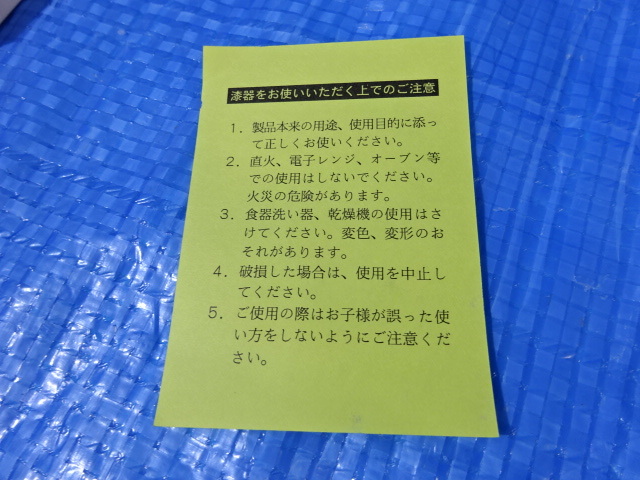 漆器をお使いいただく上でのご注意
1．製品本来の用途、使用目的に添っ
て正しくお使いください。
2．直火、電子レンジ、オーブン等
での使用はしないでください。
火災の危険があります。
3．食器洗い器、乾燥機の使用はさ
けてください。変色、変形のお
それがあります。
4．破損した場合は、使用を中止し
てください。
5．ご使用の際はお子様が誤った使
い方をしないようにご注意くだ
さい。